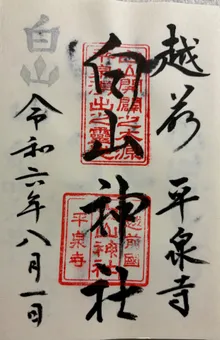 越前 平泉寺
白山神社
令和六年八月一日
白山
越前國
白山神社
平泉寺